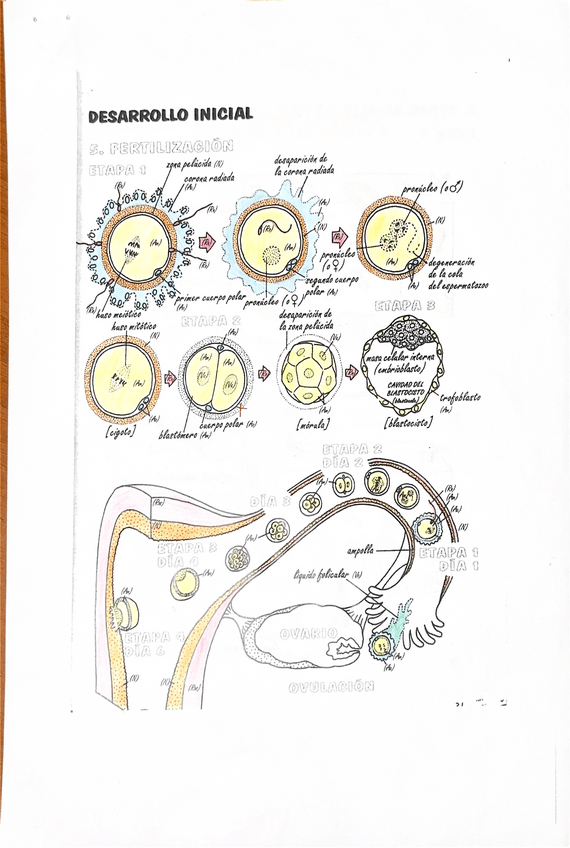 DESARROLLO INICIAL
5. FERTILIZACIÓN
ETAPA 1
zona pelúcida (N)
corona radiada
(Az)
desaparición de
la corona radiada
pronúcleo (o♂)
(Az)
(N)
(N)
(Am)
(Ro)
(Am)
pronúcleo
(o♀)
degeneración
de la cola
del espermatozoo
segundo cuerpo
polar (Az)
primer cuerpo polar
pronúcleo (o♀)
huso meiótico
huso mitótico
(N)
ETAPA 2
desaparición de
la zona pelúcida
ETAPA 3
(Am)
(Am)
masa celular interna
(embrioblasto)
CAVIDAD DEL
BLASTOCISTO
trofoblasto
(Am)
[cigoto]
blastómero (Am)
cuerpo polar (Az)
[mórula]
[blastocisto]
ETAPA 2
DÍA 2
DÍA 3
ampolla
ETAPA 1
DÍA 1
ETAPA 3
DÍA 4
líquido folicular (Ve)
OVARIO
ETAPA 4
DÍA 6
OVULACIÓN
(N)
(N)